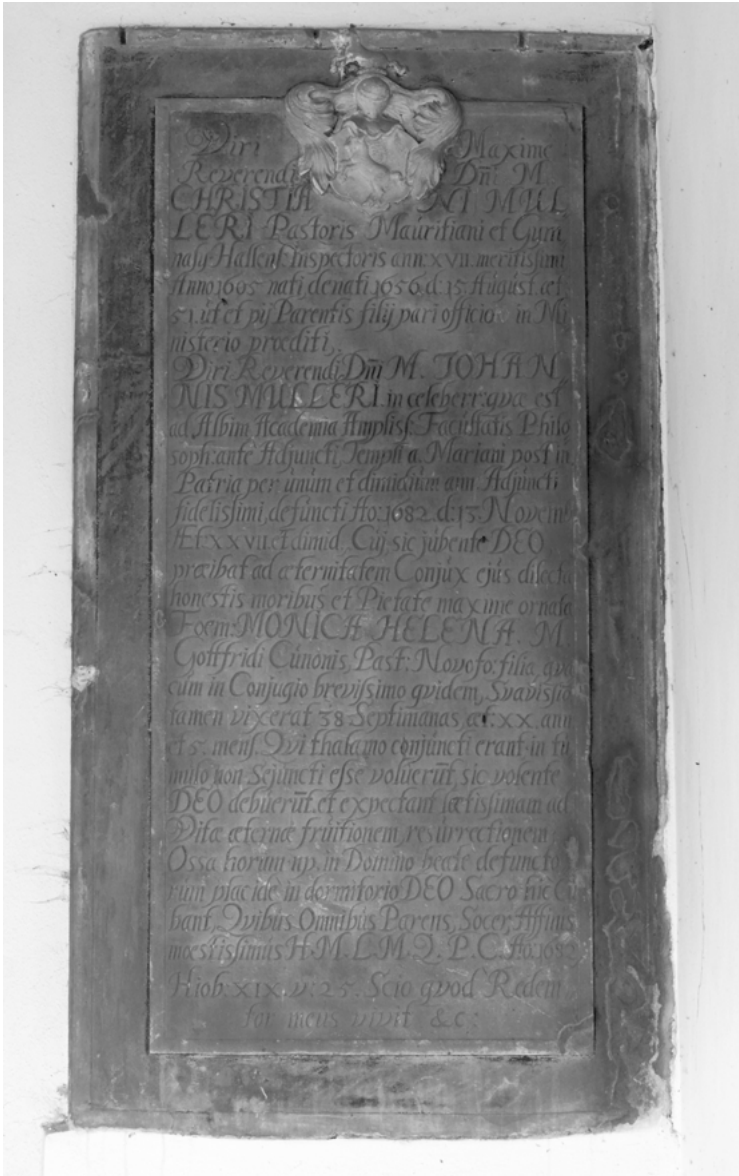 Viri Maxime
Reverendi Dn̄i M.
CHRISTIANI MUL
LERI Pastoris Mauritiani et Gym
nasij Hallens: Inspectoris ann: XVII. meritissimi
Anno 1605 nati, denati 1656 d: 15 August. æt
51. ut et pij Parentis filij pari officio in Mi
nisterio præditi,
Viri Reverendi Dn̄i M. JOHAN
NIS MULLERI. in celeberr: qvæ est
ad Albim Academia Ampliss: Facultatis Philo
soph: ante Adjuncti, Templi a. Mariani post in
Patria per unum et dimidium ann. Adjuncti
fidelissimi, defuncti Ao: 1682. d: 13. Novem
ÆT. XXVII. et dimid. Cui sic jubente DEO
præibat ad æternitatem Conjux ejus dilecta
honestis moribus et Pietate maxime ornata
Foem: MONICA HELENA. M.
Gottfridi Cunonis, Past: Novofo: filia, qva
cum in Conjugio brevissimo qvidem, Svavissimo
tamen vixerat 38 Septimanas æt. XX. ann
et 5. mens. Qvi thalamo conjuncti erant in tu
mulo non sejuncti esse voluerūt, sic volente
DEO debuerūt. et expectant lætissimam ad
Vitæ æternæ fruitionem, resurrectionem
Ossa horum np. in Domino beate defuncto
rum placide in dormitorio DEO Sacro hic Cu
bant, Qvibus Omnibus Parens, Socer, Affinis
moestissimus H. M. L. M. Q. P. C. Ao: 1682
Hiob: XIX. v: 25. Scio qvod Redem
tor meus vivit &c: